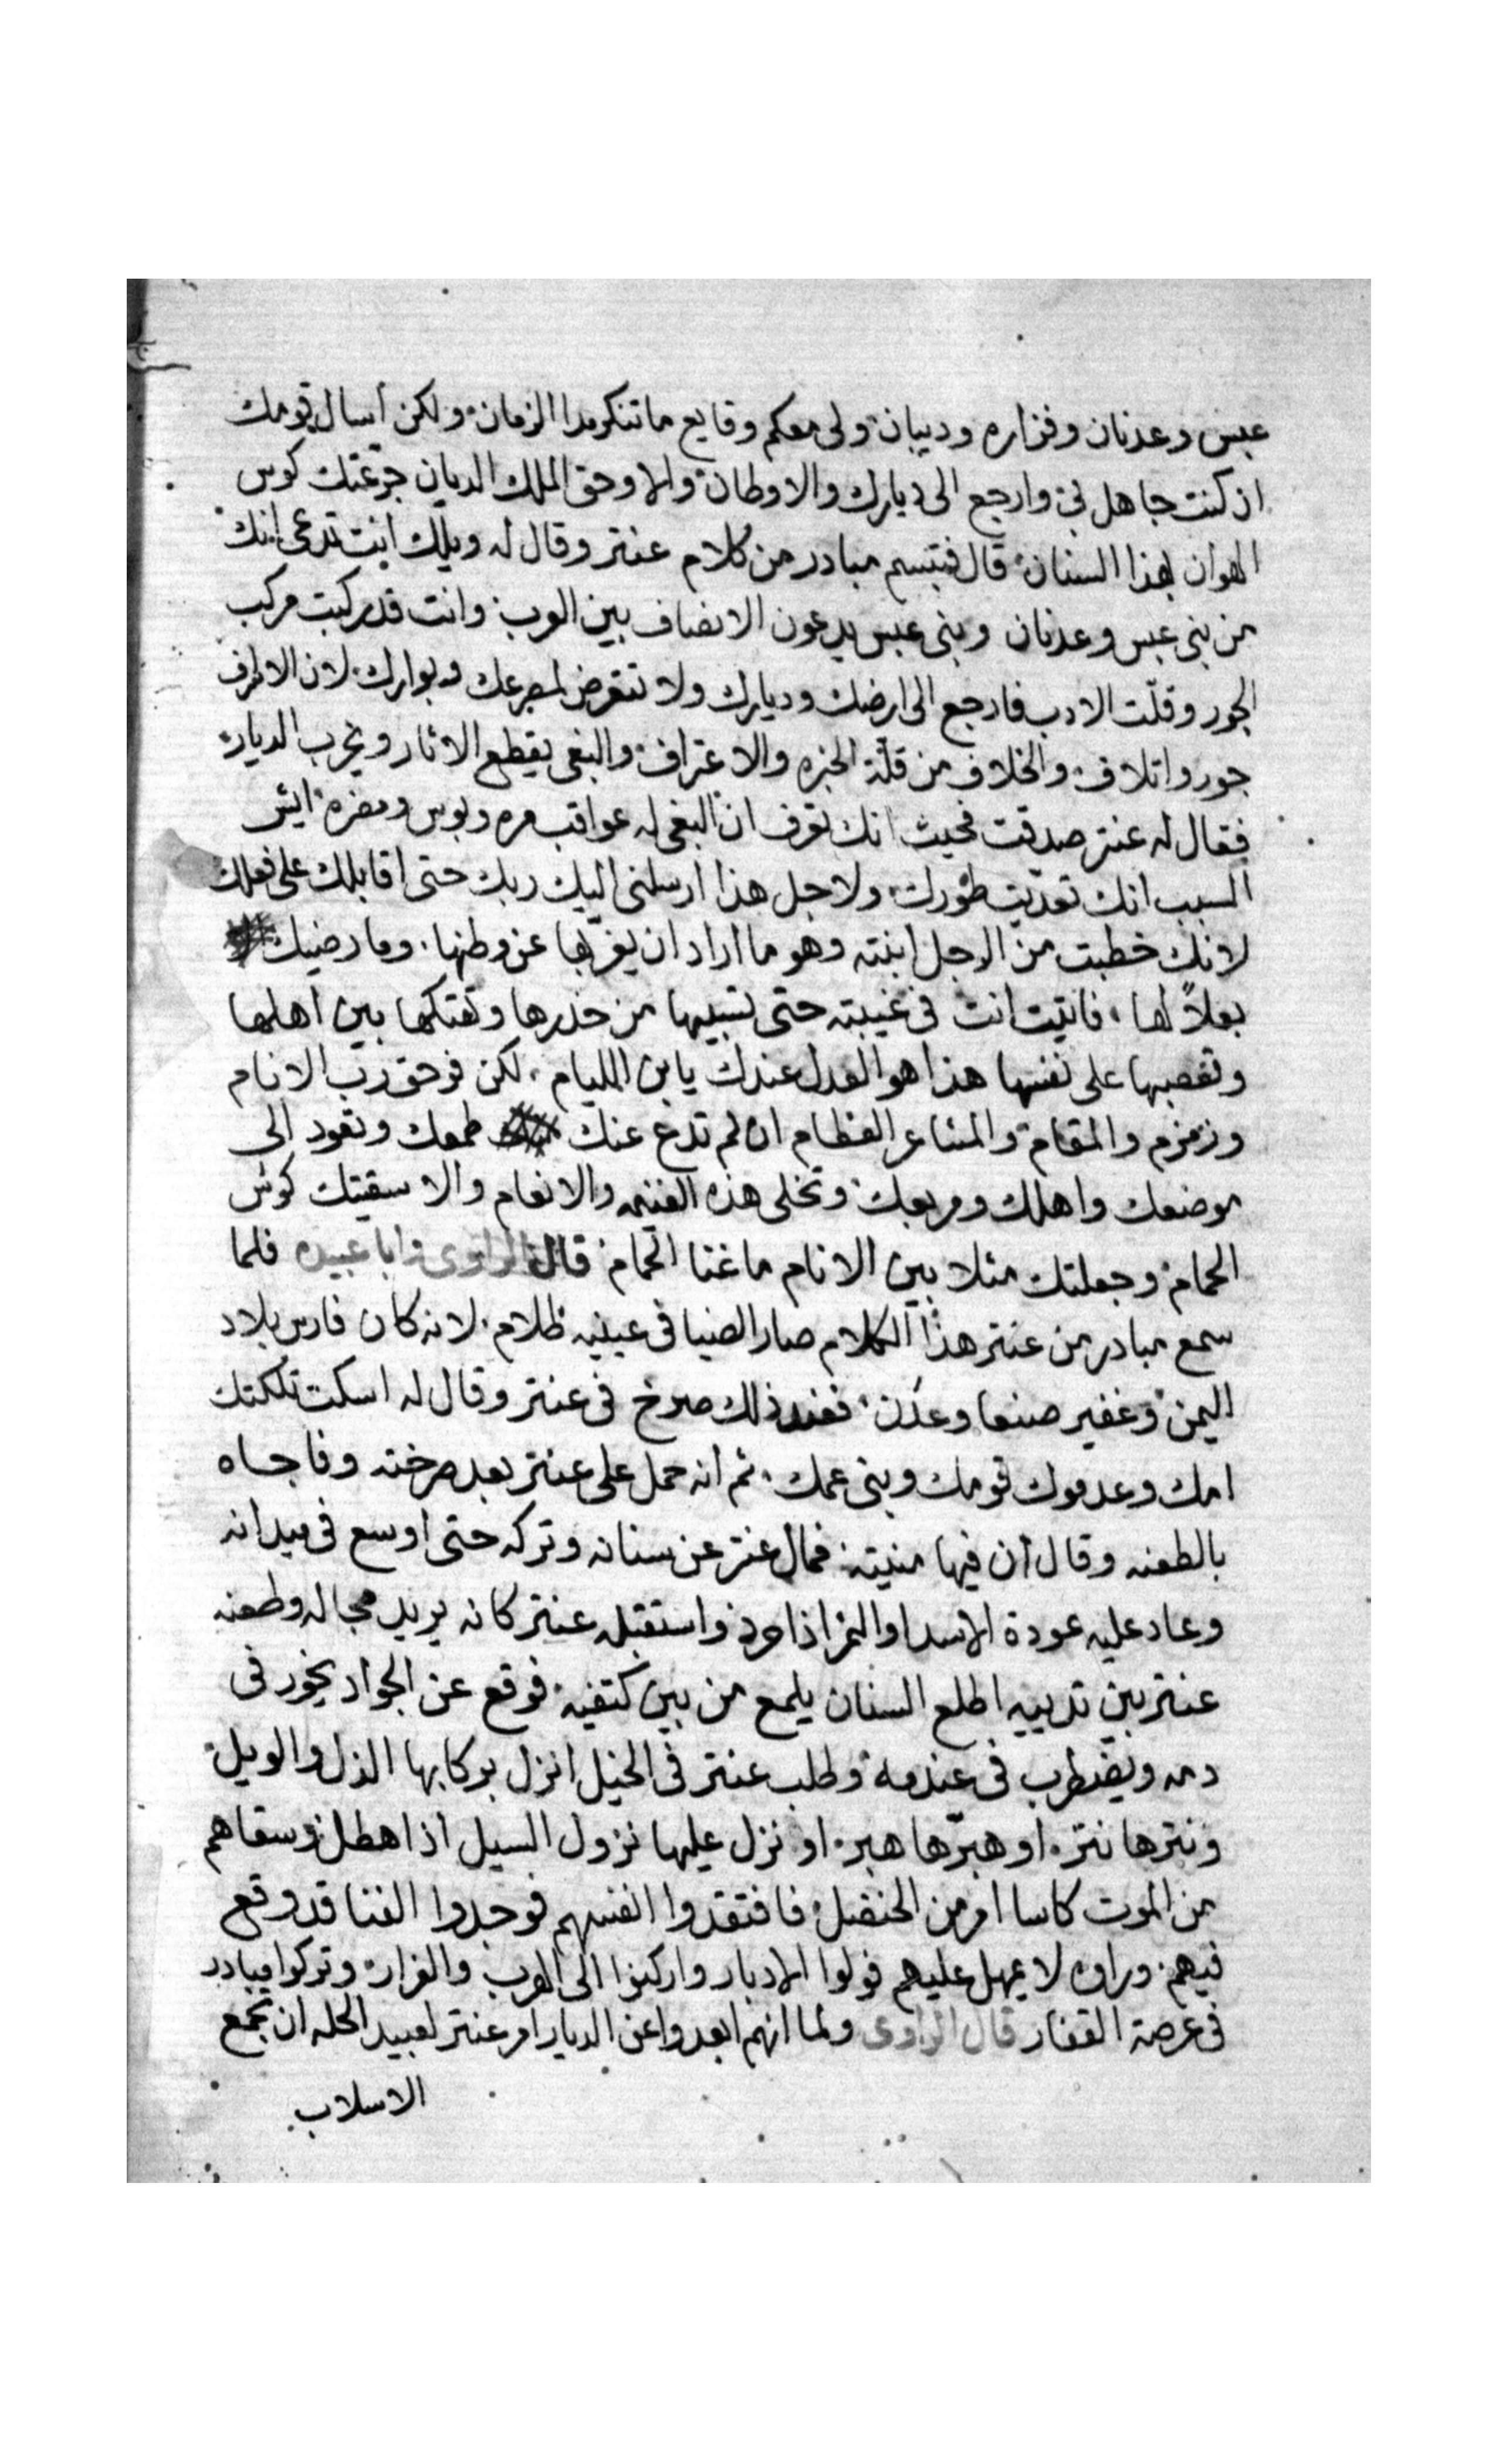 عبس وعدنان وفزاره وديبان ولى معكم وقايع ماتنكر مدا الزمان ولكن أسال قومك
ان كنت جاهل بى وارجع الى ديارك والاوطان والا وحق الملك الديان جرعتك كوس
الهوان بهذا السنان قال فتبسم مبادر من كلام عنتر وقال له ويلك انت تدعى انك
من بنى عبس وعدنان وبنى عبس يدعون الانصاف بين العرب وانت قدركبت مركب
الجور وقلّت الادب فارجع الى ارضك وديارك ولا تتعرض لمصرعك وبوارك لان الاطرف
جور واتلاف والخلاف من قلّة الخبره والاعتراف والبغى يقطع الاثار ويخرب الديار
فقال له عنتر صدقت فحيث انك تعرف ان البغى له عواقب مره وبوس ومضره ايش
السبب انك تعدّيت طورك ولاجل هذا ارسلنى اليك ربك حتى اقابلك على فعلك
لانك خطبت من الرجل ابنته وهو ما اراد ان يغرّبها عن وطنها وما رضيك
بعلاً لها فاتيت انت فى غيبته حتى تسبيها من خدرها وتهتكها بين اهلها
وتغصبها على نفسها هذا هو العدل عندك يابن الليام لكن فوحق رب الانام
وزمزم والمقام والمشاعر العظام ان لم تدع عنك طمعك وتعود الى
موضعك واهلك ومربعك وتخلى هذه الغنيمه والانعام والا سقيتك كوس
الحمام وجعلتك مثلا بين الانام ماغنا الحمام قال الراوى ابا عبيده فلما
سمع مبادر من عنتر هذا الكلام صار الضيا فى عينيه ظلام لانه كان فارس بلاد
اليمن وغفير صنعا وعدن فعند ذلك صرخ فى عنتر وقال له اسكت تكلتك
امك وعدموك قومك وبنى عمك ثم انه حمل على عنتر بعد صرخته وفاجاه
بالطعنه وقال أن فيها منيته فمال عنتر عن سنانه وتركه حتى اوسع فى ميدانه
وعاد عليه عودة الاسد او النمر اذا حرد واستقبله عنتر كانه يريد مجاله وطعنه
عنتر بين تدييه اطلع السنان يلمع من بين كتفيه فوقع عن الجواد يخور فى
دمه ويضطرب فى عندمه وطلب عنتر فى الخيل انزل بركابها الذل والويل
ونترها نتر او هبرّها هبر او نزل عليها نزول السيل اذا هطل وسقاهم
من الموت كاسا امرّ من الحنضل فافتقدوا انفسهم فوجدوا الفنا قد وقع
فيهم وراوه لا يمهل عليهم فولوا الادبار واركنوا الى الهرب والفرار وتركوا مبادر
فى عرصة القفار قال الراوى ولما انهم ابعدوا عن الديار امر عنتر لعبيد الحله ان تجمع
الاسلاب